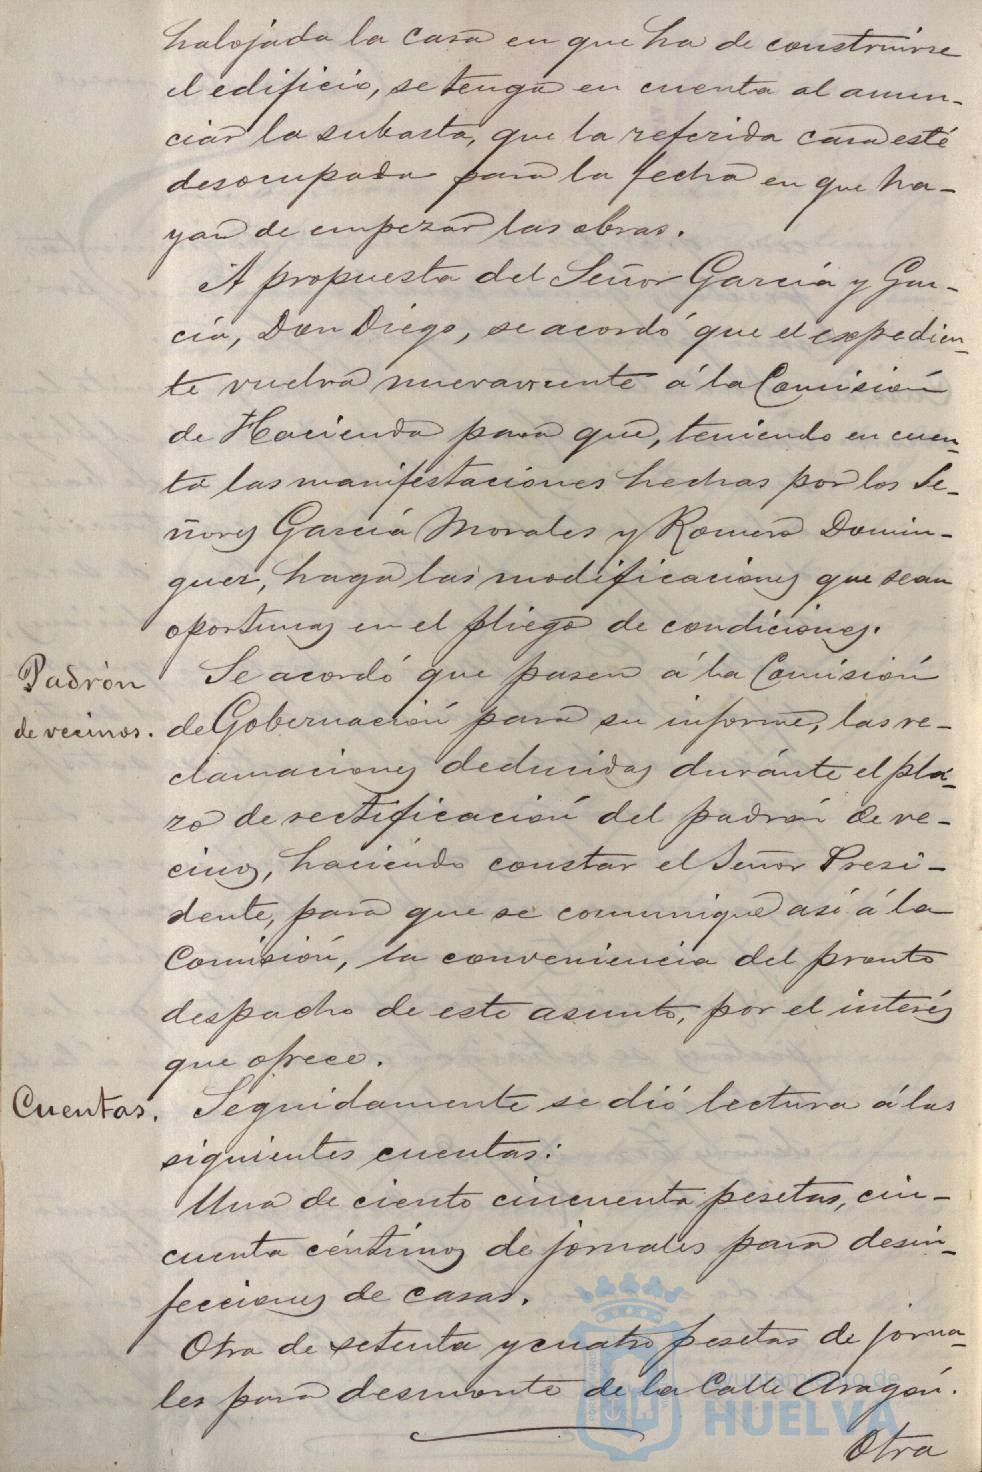 halojada la casa en que ha de construirse
el edificio, se tenga en cuenta al anun-
ciar la subasta, que la referida casa esté
desocupada para la fecha en que ha-
yan de empezar las obras.
A propuesta del Señor García y Gar-
cía, Don Diego, se acordó que el expedien-
te vuelva nuevamente á la Comisión
de Hacienda para que, teniendo en cuen-
ta las manifestaciones hechas por los Se-
ñores García Morales y Romero Domin-
guez, haga las modificaciones que sean
oportunas en el pliego de condiciones.
Padrón
de vecinos.
Se acordó que pasen á la Comisión
de Gobernación para su informe, las re-
clamaciones deducidas duránte el pla-
zo de rectificación del padrón de ve-
cinos, haciéndo constar el Señor Presi-
dente, para que se comunique así á la
Comisión, la conveniencia del pronto
despacho de este asunto, por el interés
que ofrece.
Cuentas.
Seguidamente se dió lectura á las
siguientes cuentas:
Una de ciento cincuenta pesetas, cin-
cuenta céntimos de jornales para desin-
fecciones de casas.
Otra de setenta y cuatro pesetas de jorna-
les para desmonte de la Calle Aragón.
Otra
Ayuntamiento de
HUELVA